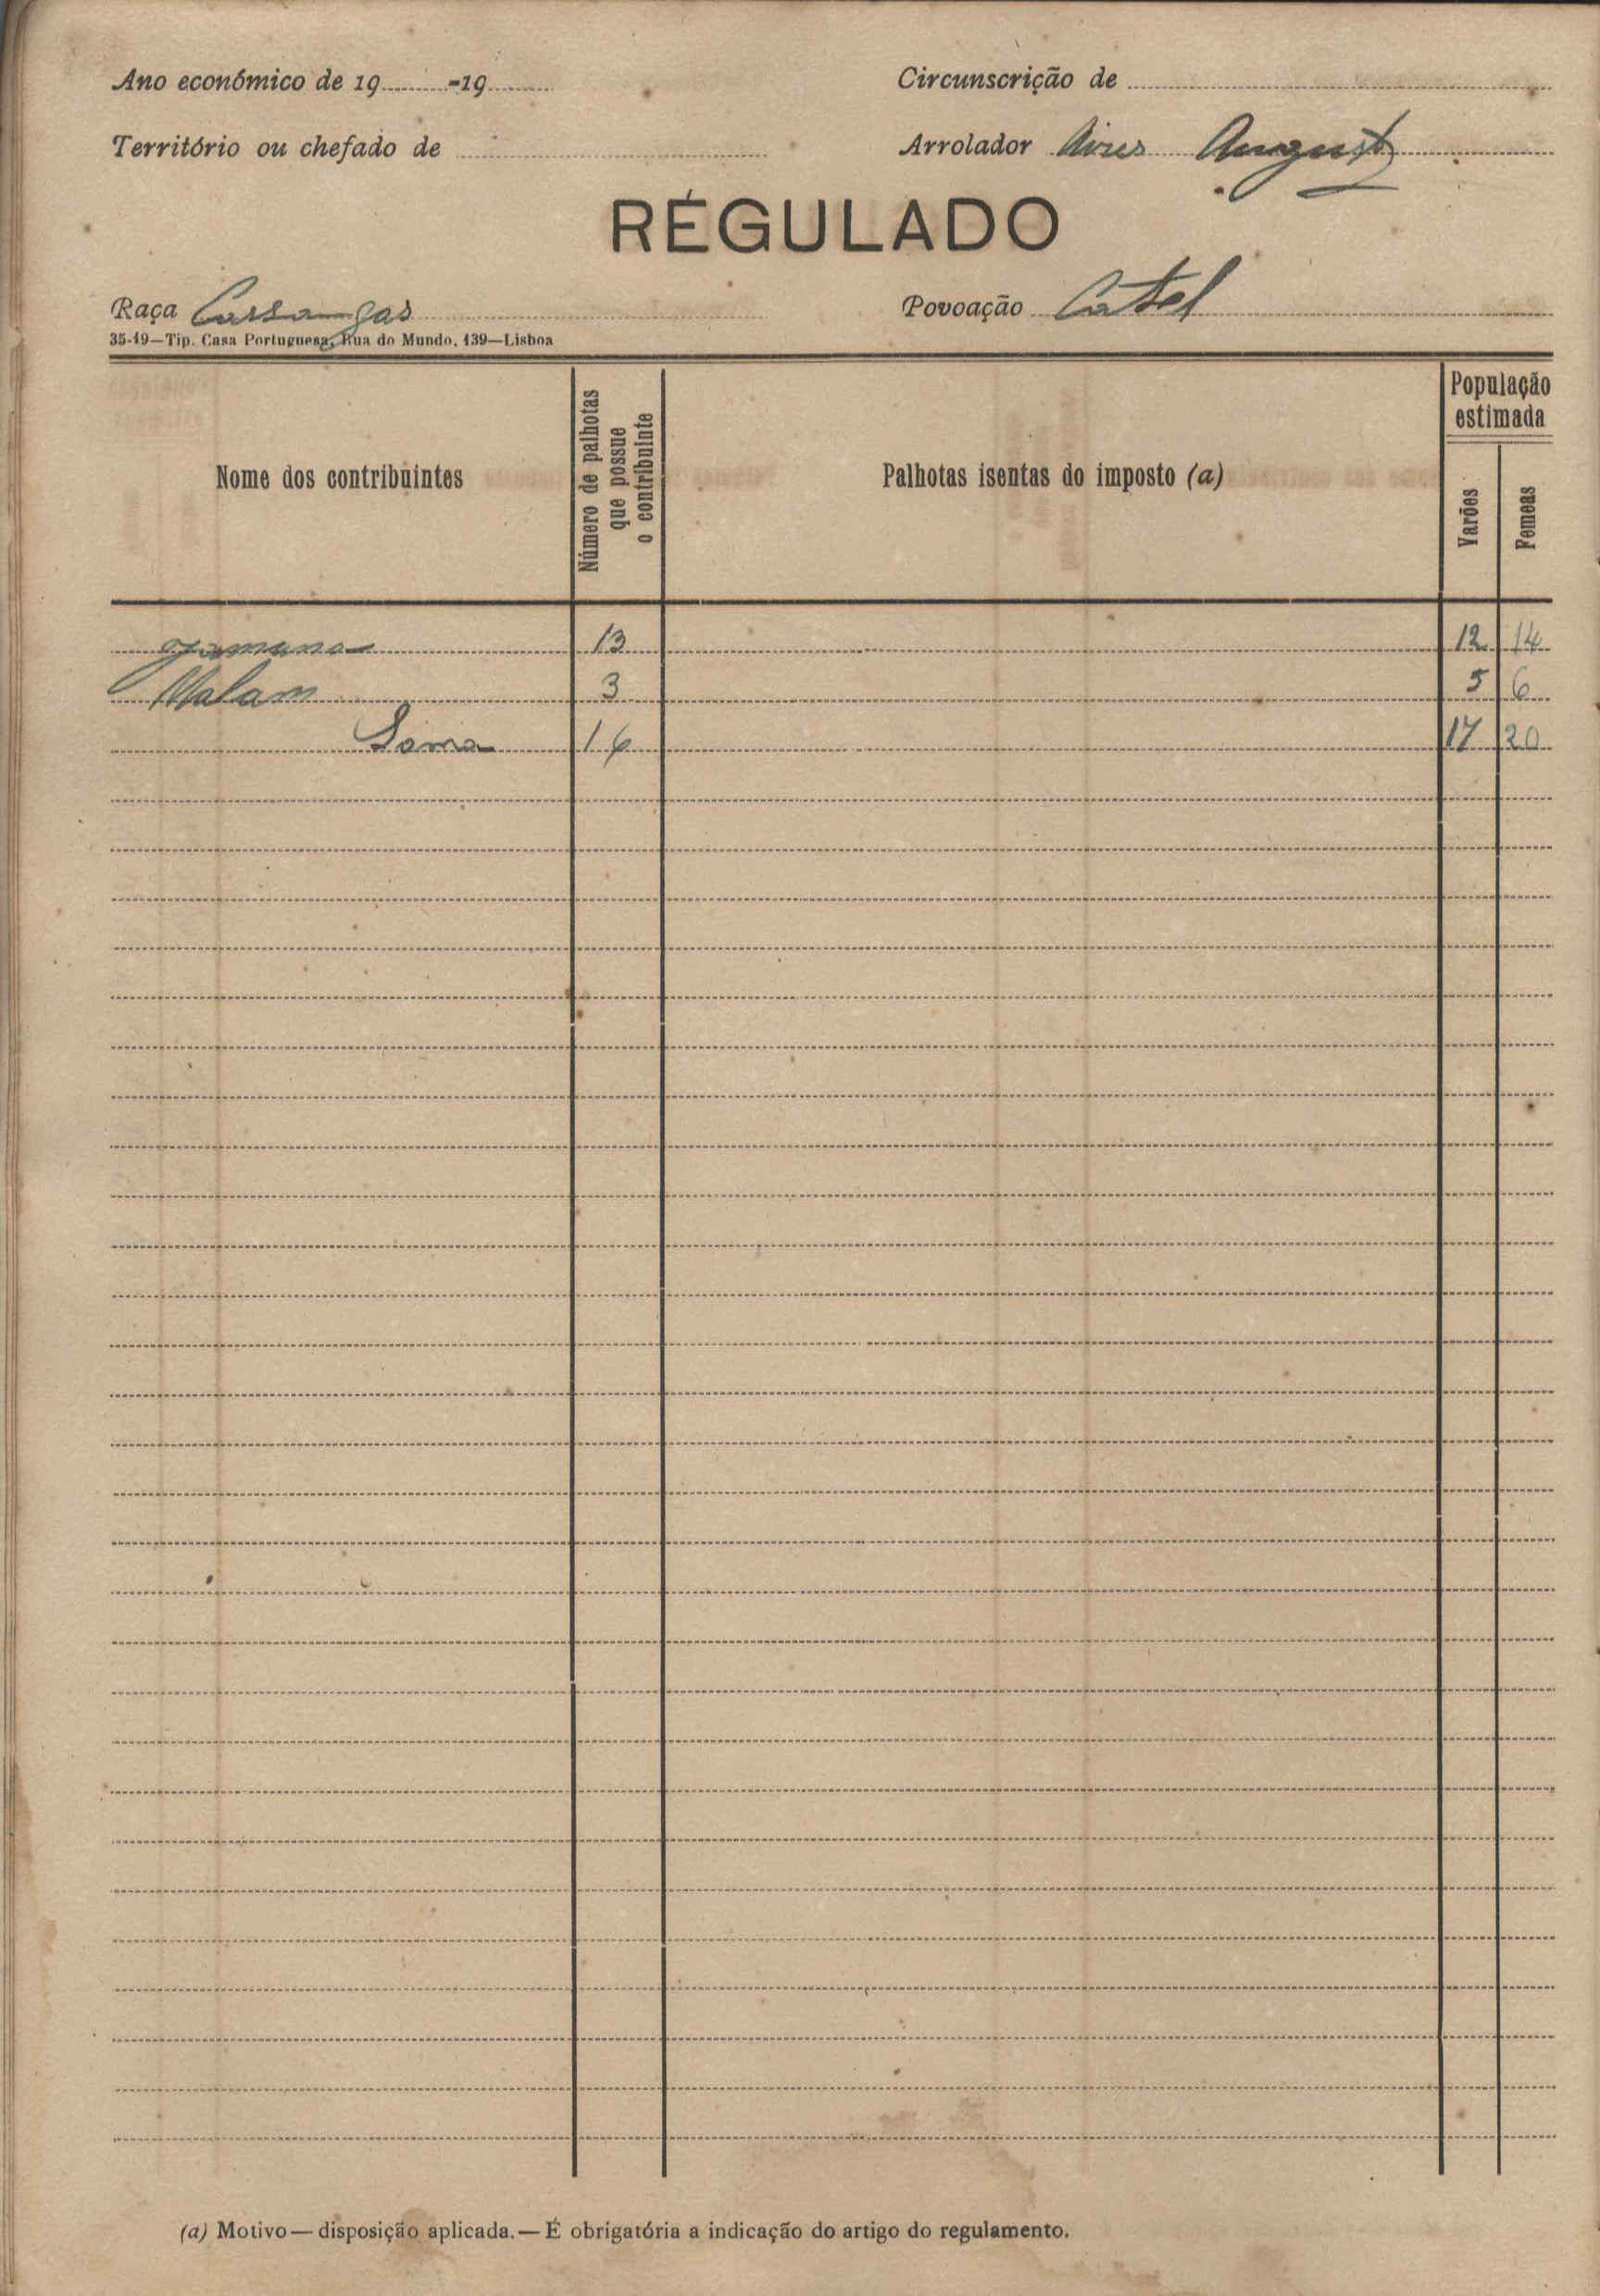 Ano económico de 19.........-19.........
Circunscrição de
Território ou chefado de
Arrolador Aires Augusto
RÉGULADO
Raça Cassangas
Povoação Catel
35-19—Tip. Casa Portuguesa, Rua do Mundo, 139—Lisboa
Nome dos contribuintes
Número de palhotas que possue o contribuinte
Palhotas isentas do imposto (a)
População estimada
Varões
Femeas
13 12 14
Malam 3 5 6
Soma 16 17 20
(a) Motivo—disposição aplicada.—É obrigatória a indicação do artigo do regulamento.